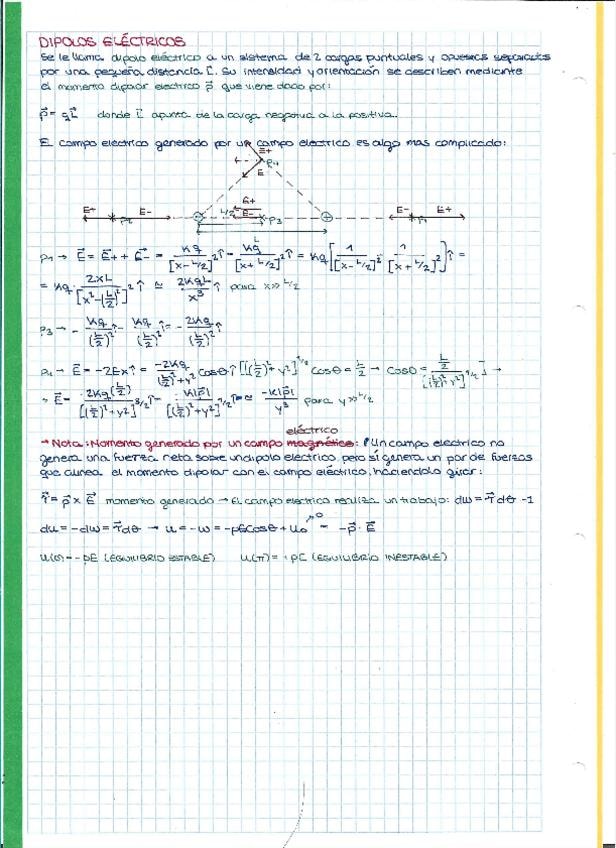 DIPOLOS ELÉCTRICOS
Se le llama dipolo eléctrico a un sistema de 2 cargas puntuales y opuestas separadas
por una pequeña distancia L. Su intensidad y orientación se describen mediante
el momento dipolar electrico p⃗ que viene dado por:
p⃗ = qL⃗ donde L⃗ apunta de la carga negativa a la positiva.
El campo electrico generado por un campo electrico es algo mas complicado:
E+
P4
E
E+ E-
P2
- L/2 E+
E-
P3
+
E- E+
P1
L
P1 → E⃗ = E⃗+ + E⃗- = Kq/[x-L/2]² î - Kq/[x+L/2]² î = Kq[1/[x-L/2]² - 1/[x+L/2]²] î =
= Kq · 2xL/[x²-(L/2)²]² î ≃ 2KqL/x³ î para x>> L/2
P3 → - Kq/(L/2)² î - Kq/(L/2)² î = - 2Kq/(L/2)² î
P4 → E⃗ = -2Ex î = -2Kq/((L/2)²+y²) cosθ î [[(L/2)²+y²]^1/2 cosθ = L/2 → cosθ = (L/2)/[(L/2)²+y²]^1/2] →
→ E⃗ = - 2Kq(L/2)/[(L/2)²+y²]^3/2 î = - K|p⃗|/[(L/2)²+y²]^3/2 î ≃ -K|p⃗|/y³ para y>> L/2
eléctrico
→ Nota: Momento generado por un campo magnético: Un campo electrico no
genera una fuerza neta sobre un dipolo electrico, pero sí genera un par de fuerzas
que alinea el momento dipolar con el campo eléctrico, haciendolo girar:
τ⃗ = p⃗ x E⃗ momento generado → El campo electrico realiza un trabajo: dw = τ⃗dθ -1
du = -dw = τ⃗dθ → u = -w = -pEcosθ + u₀ →0 = -p⃗ · E⃗
u(0) = - pE (EQUILIBRIO ESTABLE) u(π) = · pE (EQUILIBRIO INESTABLE)